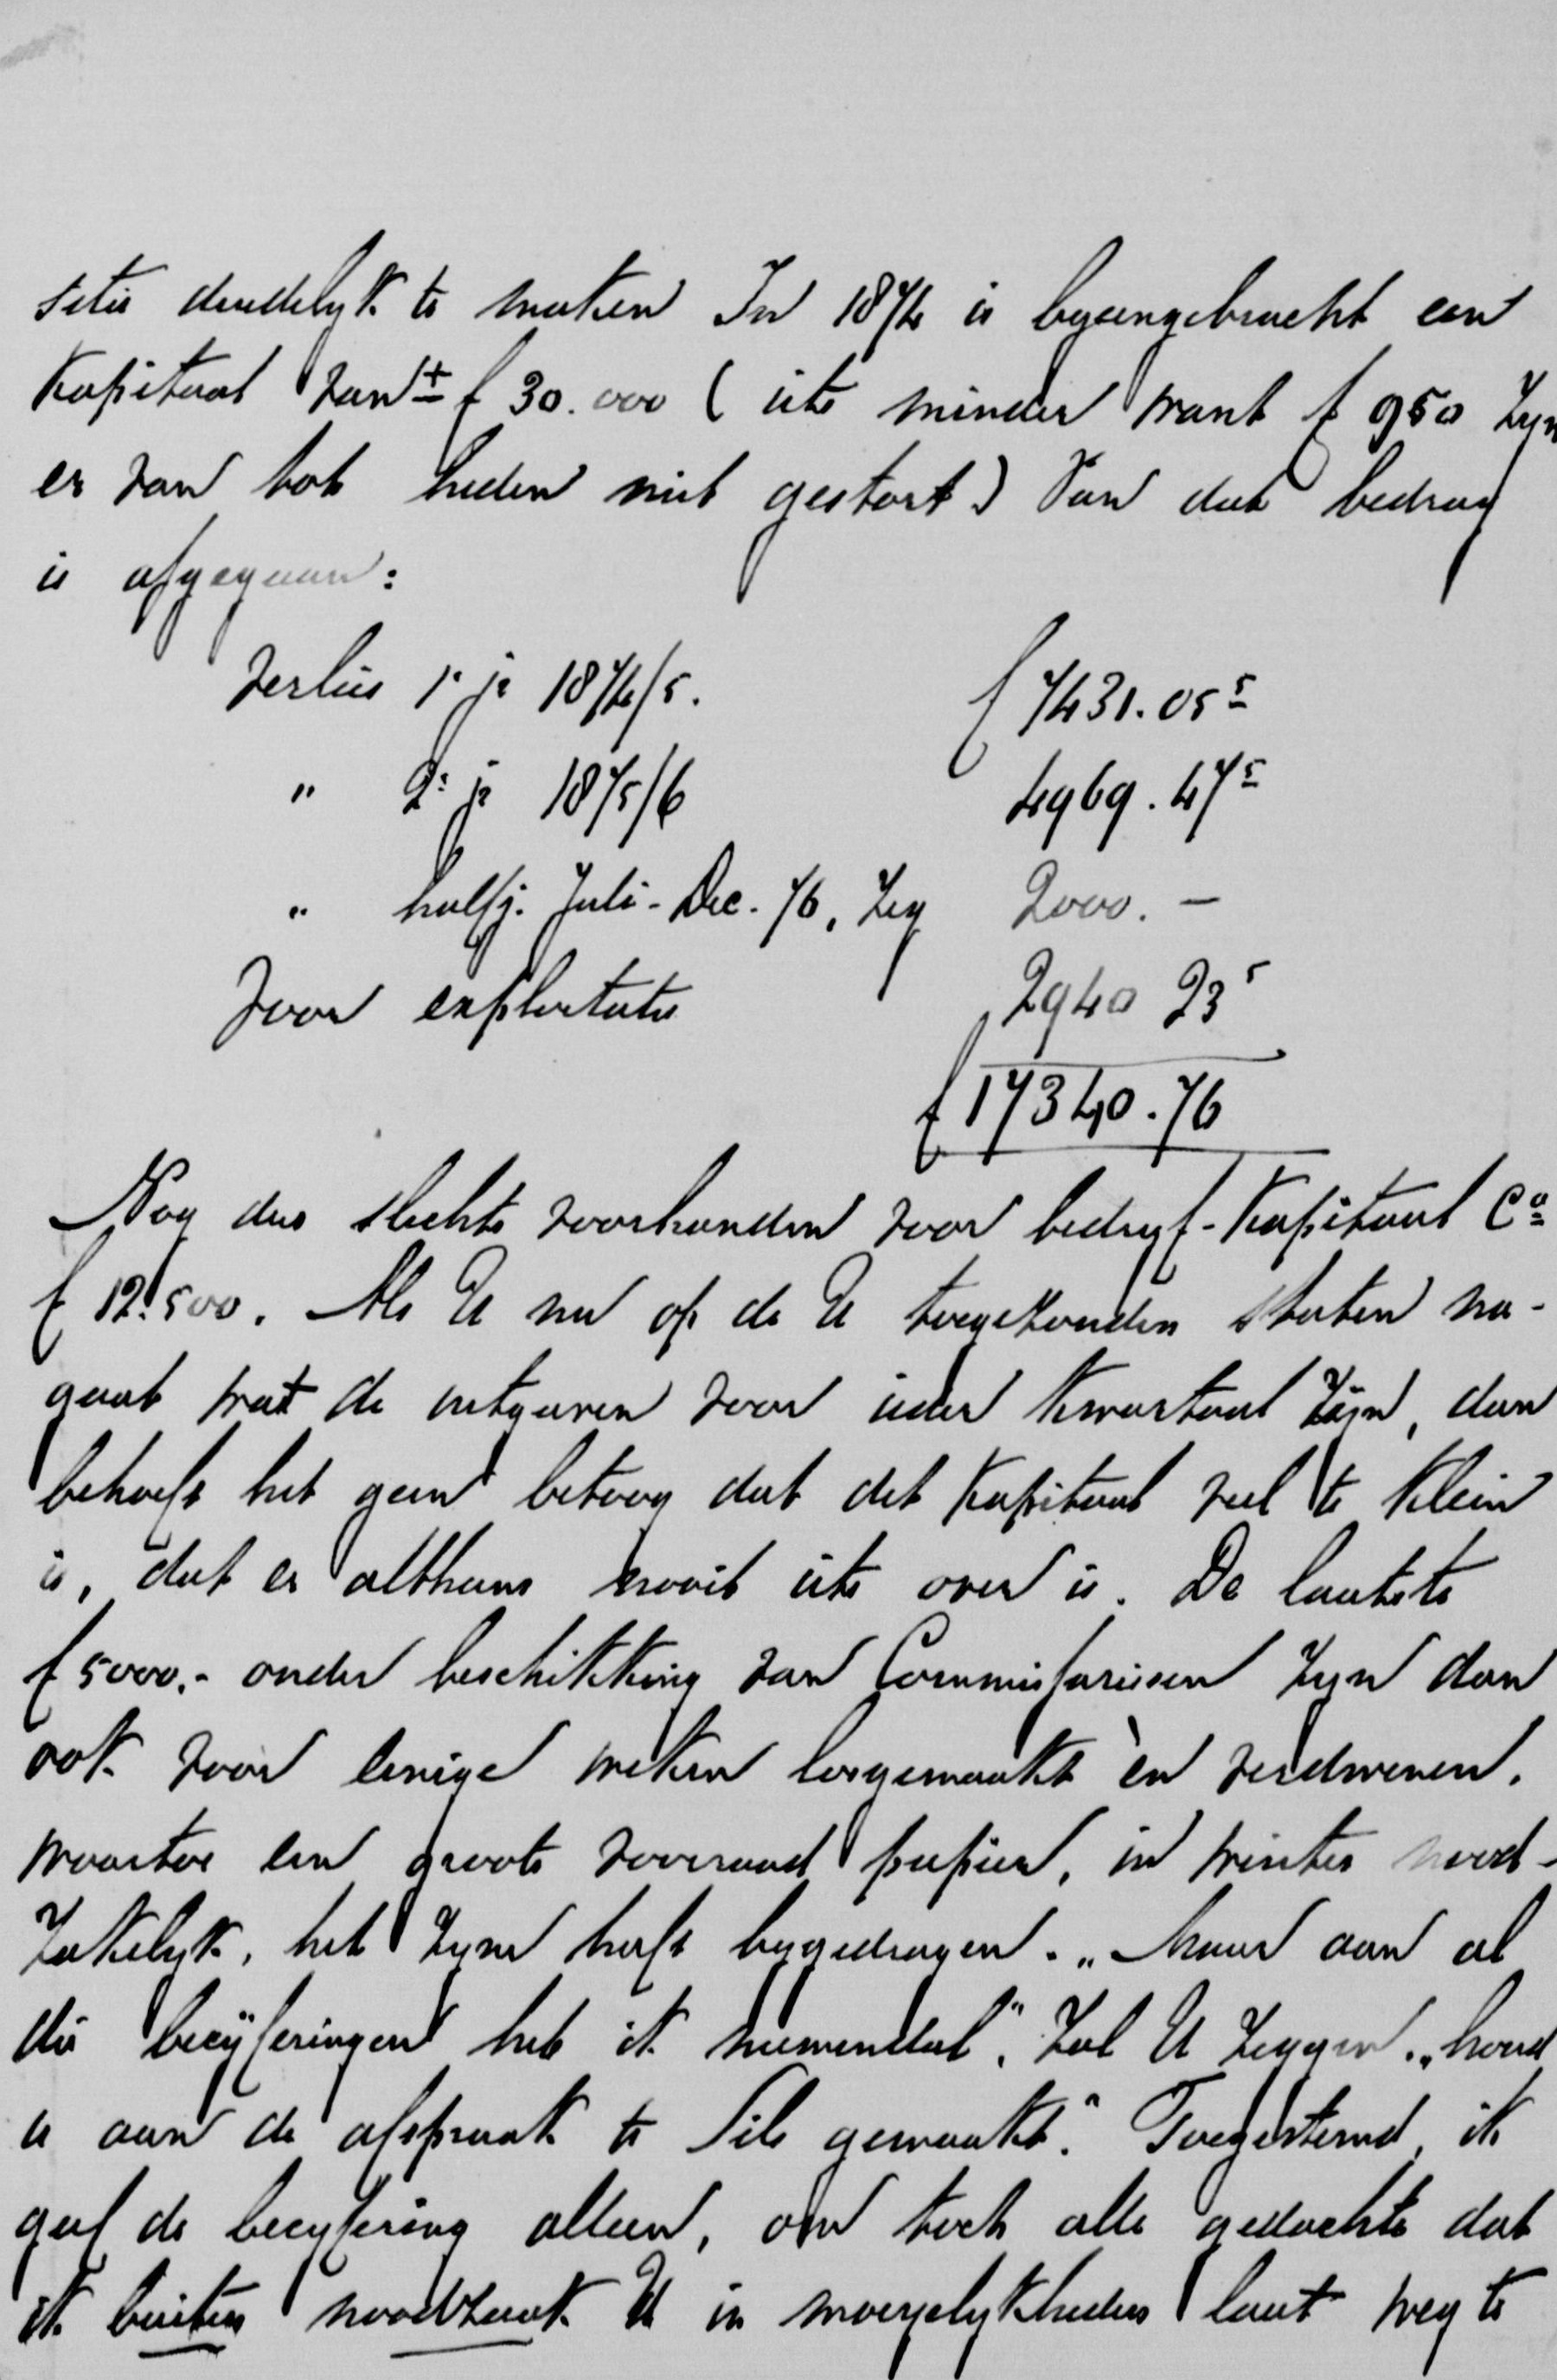 sitie duidelyk te maken In 1874 is byeengebracht een
Kapitaal van ± f 30.000 (iets minder want f 950 zyn
er van tot heden niet gestort) Van dat bedrag
is afgegaan:
Verlies 1e jr 1874/5. f 7431.05⁵
" 2e jr 1875/6 4969.47⁵
" halfj. Juli-Dec. 76, zeg 2000.-
Voor exploitatie 2940 23⁵
f 17340.76
Nog dus slechts voorhanden voor bedryf-Kapitaal Ca
f 12.500. Als U nu op de U toegezonden staten na-
gaat wat de uitgaven voor ieder Kwartaal zijn, dan
behoeft het geen betoog dat dit Kapitaal veel te klein
is, dat er althans nooit iets over is. De laatste
f 5000.- onder beschikking van Commissarissen zyn dan
ook voor eenige weken losgemaakt èn verdwenen,
waartoe een groote voorraad papier, in winter nood-
zakelyk, het zyne heeft bygedragen. „Maar aan al
die becijferingen heb ik niemendal", zal U zeggen. „houd
u aan de afspraak te Sils gemaakt." Toegestemd, ik
gaf de becyfering alleen, om toch alle gedachte dat
ik buiten noodzaak U in moeyelykheden laat weg te